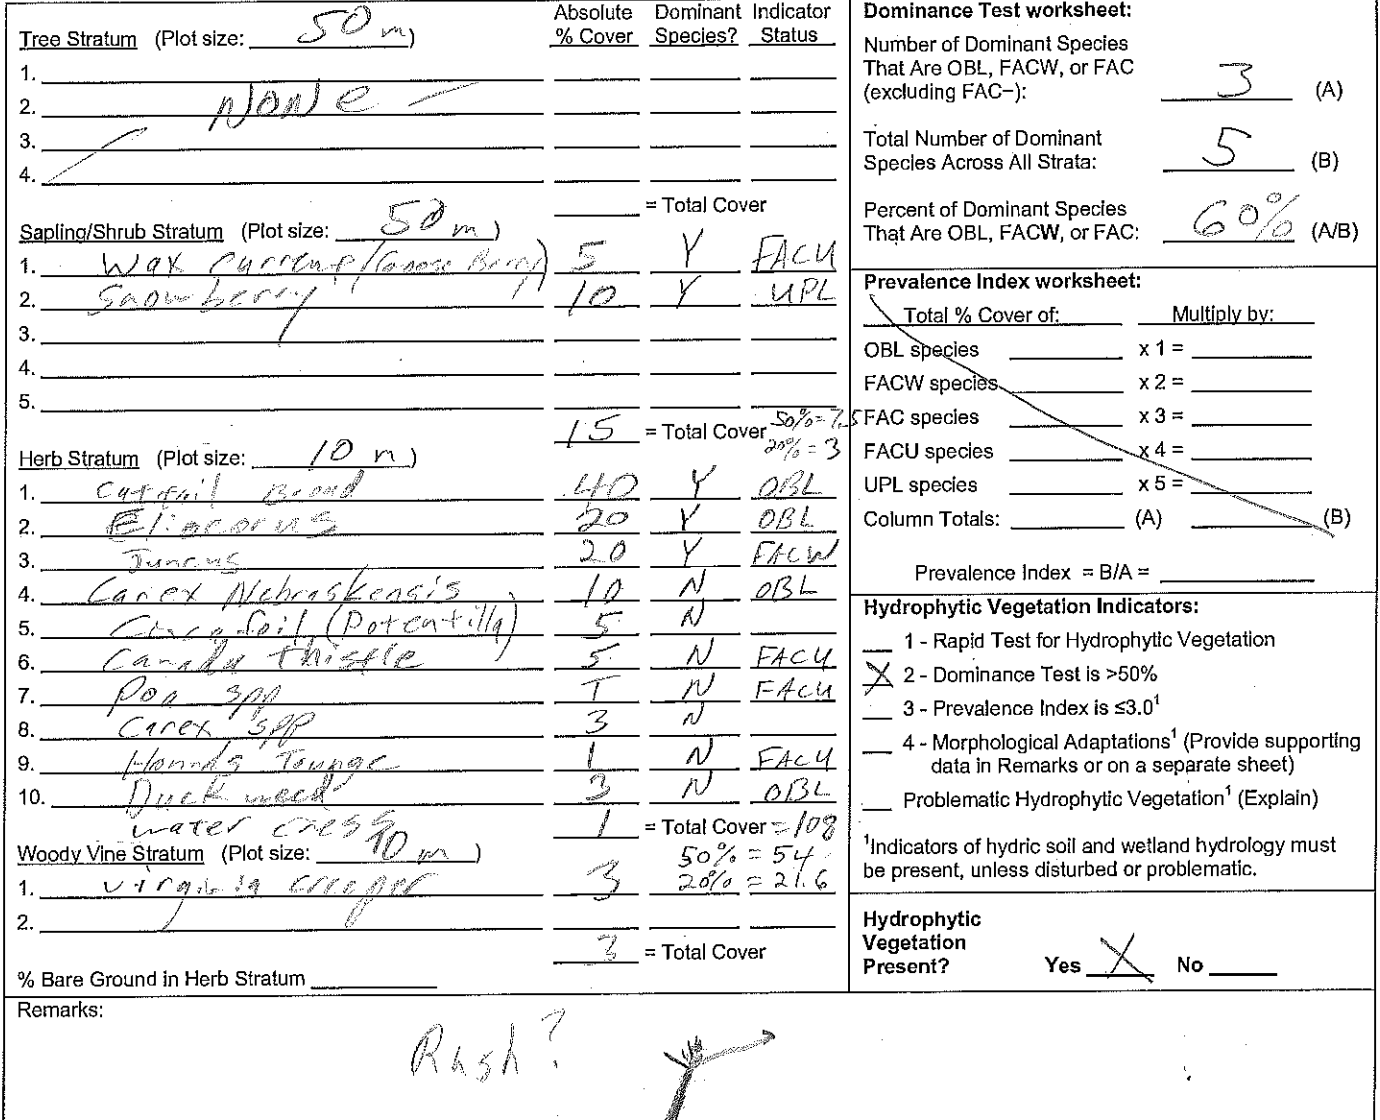 Absolute Dominant Indicator
Tree Stratum (Plot size: 50 m) % Cover Species? Status
1.
2. NONE
3.
4.
= Total Cover
Sapling/Shrub Stratum (Plot size: 50 m)
1. Wax 5 Y FACU
2. Snowberry 10 Y UPL
3.
4.
5.
15 = Total Cover 50% = 7.5
20% = 3
Herb Stratum (Plot size: 10 m)
1. Cattail Broad 40 Y OBL
2. 20 Y OBL
3. Juncus 20 Y FACW
4. Carex Nebraskensis 10 N OBL
5. (Potentilla) 5 N
6. Canada thistle 5 N FACU
7. Poa spp T N FACU
8. Carex spp 3 N
9. Hounds Tounge 1 N FACU
10. Duck weed 3 N OBL
water cress 1 = Total Cover = 108
Woody Vine Stratum (Plot size: 10 m) 50% = 54
1. virginia creeper 3 20% = 21.6
2.
3 = Total Cover
% Bare Ground in Herb Stratum
Remarks:
Rush?
Dominance Test worksheet:
Number of Dominant Species
That Are OBL, FACW, or FAC
(excluding FAC−): 3 (A)
Total Number of Dominant
Species Across All Strata: 5 (B)
Percent of Dominant Species
That Are OBL, FACW, or FAC: 60% (A/B)
Prevalence Index worksheet:
Total % Cover of: Multiply by:
OBL species x 1 =
FACW species x 2 =
FAC species x 3 =
FACU species x 4 =
UPL species x 5 =
Column Totals: (A) (B)
Prevalence Index = B/A =
Hydrophytic Vegetation Indicators:
1 - Rapid Test for Hydrophytic Vegetation
X 2 - Dominance Test is >50%
3 - Prevalence Index is ≤3.0¹
4 - Morphological Adaptations¹ (Provide supporting
data in Remarks or on a separate sheet)
Problematic Hydrophytic Vegetation¹ (Explain)
¹Indicators of hydric soil and wetland hydrology must
be present, unless disturbed or problematic.
Hydrophytic
Vegetation
Present? Yes X No